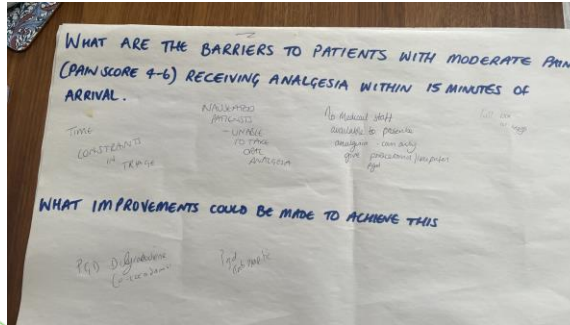 WHAT ARE THE BARRIERS TO PATIENTS WITH MODERATE PAIN
(PAIN SCORE 4-6) RECEIVING ANALGESIA WITHIN 15 MINUTES OF
ARRIVAL.
TIME
CONSTRAINTS
IN
TRIAGE
NAUSEATED
PATIENTS
- UNABLE
TO TAKE
ORAL
ANALGESIA
No medical staff
available to prescribe
analgesia - can only
give paracetamol/ibuprofen
pgd
WHAT IMPROVEMENTS COULD BE MADE TO ACHIEVE THIS
PGD - Dihydrocodeine
Co-codamol
Pgd